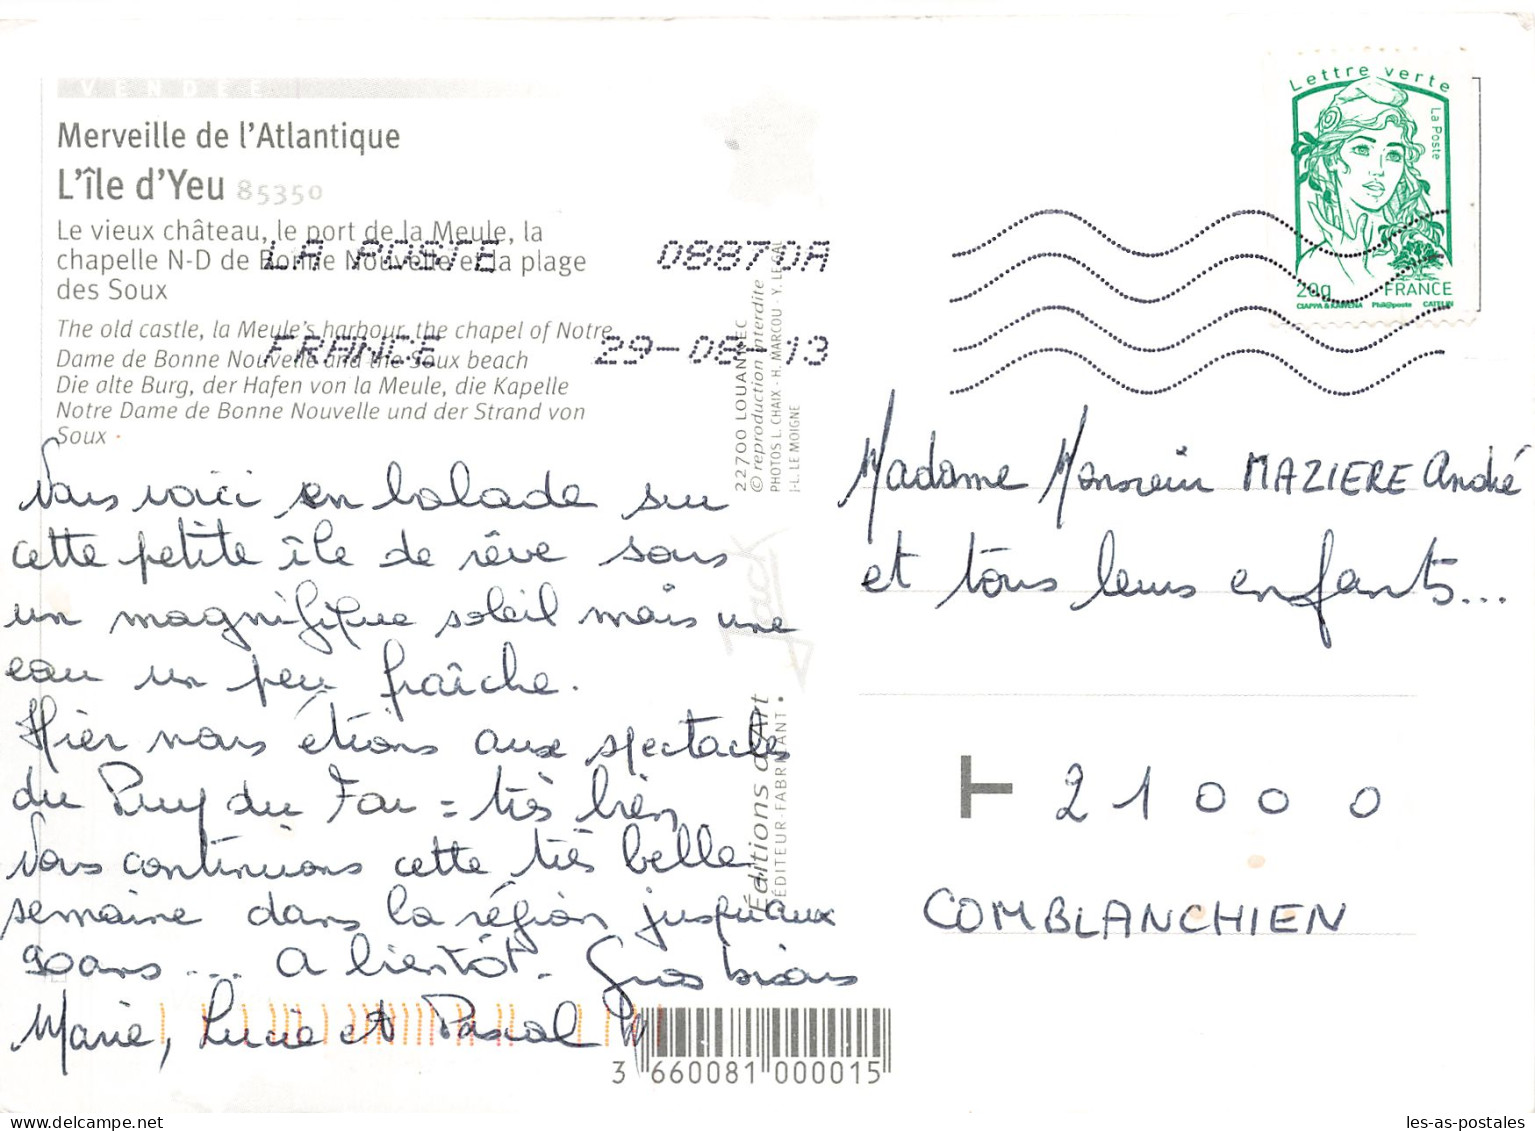 VENDÉE
Merveille de l'Atlantique
L'île d'Yeu 85350
Le vieux château, le port de la Meule, la
chapelle N-D de Bonne Nouvelle et la plage
des Soux
The old castle, la Meule's harbour, the chapel of Notre
Dame de Bonne Nouvelle and the Soux beach
Die alte Burg, der Hafen von la Meule, die Kapelle
Notre Dame de Bonne Nouvelle und der Strand von
Soux
LA POSTE 08870A
FRANCE 29-08-13
Nous voici en balade sur
cette petite île de rêve sous
un magnifique soleil mais une
eau un peu fraîche.
Hier nous étions aux spectacles
du Puy du Fou = très bien
Nous continuons cette très belle
semaine dans la région jusqu'aux
90 ans .... A bientôt. Gros bisous
Marie, Lucie et Pascal
3 660081 000015
22700 LOUANNEC
© reproduction interdite
PHOTOS L. CHAIX - H. MARCOU - Y. LE GAL
J-L. LE MOIGNE
Jack
Éditions d'Art
ÉDITEUR-FABRICANT
Lettre verte
La Poste
20g FRANCE
CIAPPA & KAWENA Phil@poste CATELIN
Madame Monsieur MAZIERE André
et tous leurs enfants...
T 21000
COMBLANCHIEN
les-as-postales